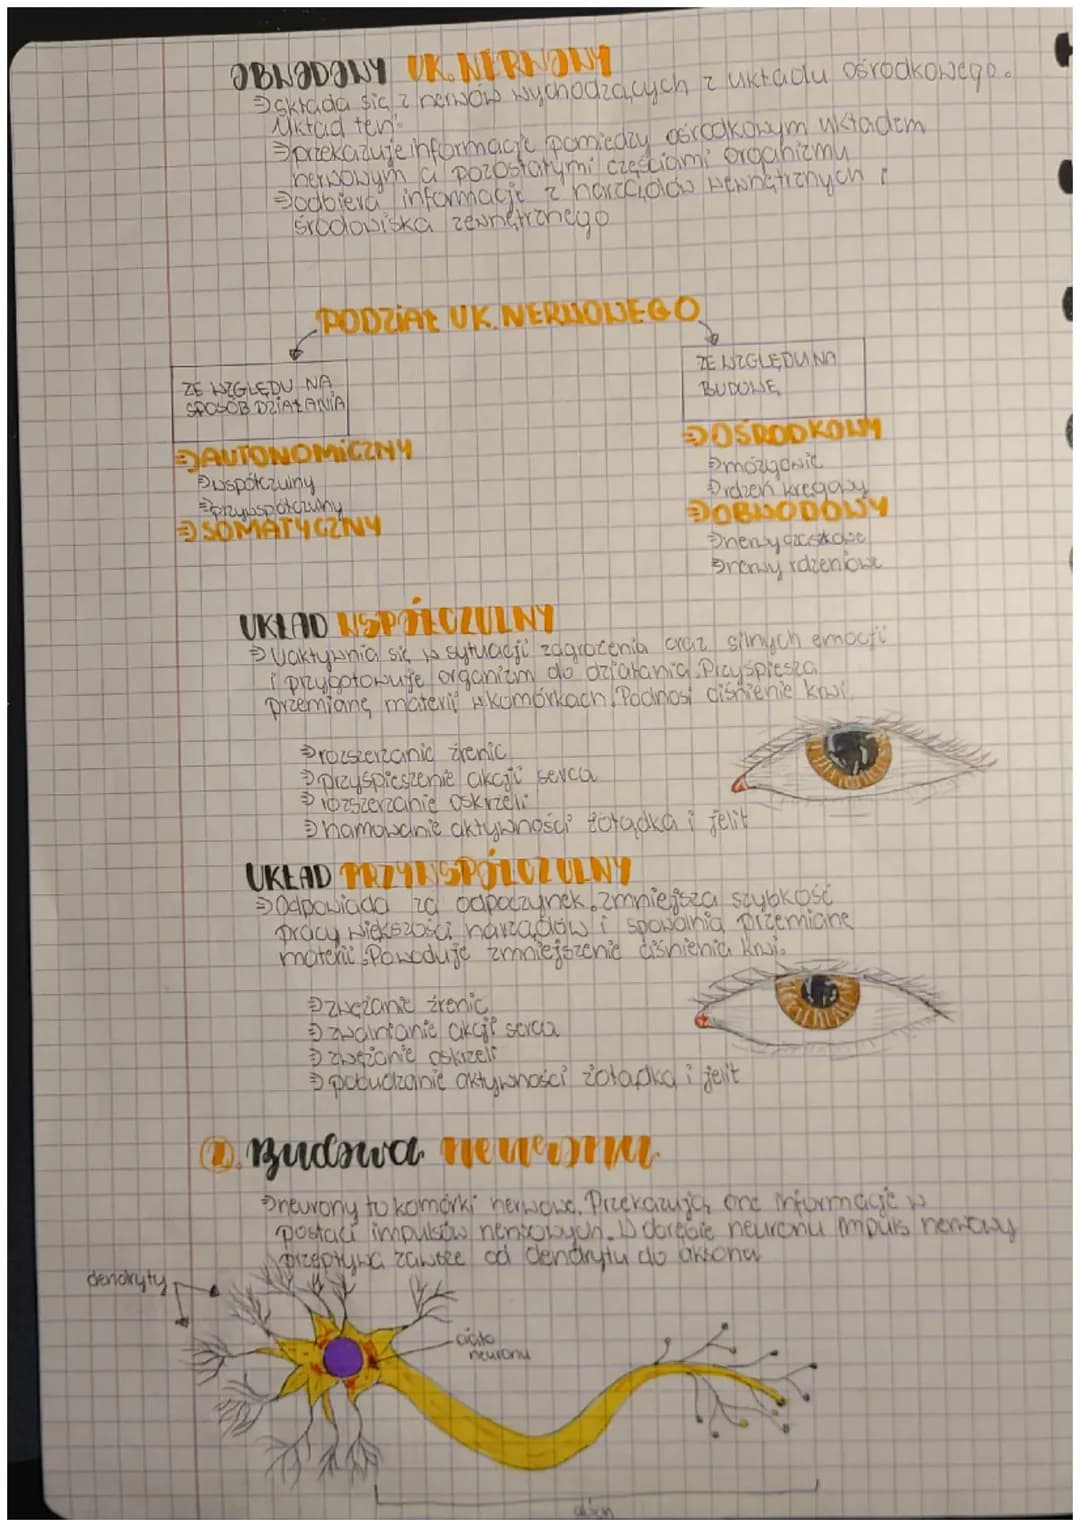 OBWODOWY UK. NERWOWY
składa się z nerwów wychodzących z układu ośrodkowego.
Układ ten:
przekazuje informacje pomiędzy ośrodkowym układem
nerwowym a pozostałymi częściami organizmu
odbiera informacje z narządów wewnętrznych i
środowiska zewnętrznego
PODZIAŁ UK. NERWOWEGO
ZE WZGLĘDU NA
SPOSÓB DZIAŁANIA
AUTONOMICZNY
współczulny
przywspółczulny
SOMATYCZNY
ZE WZGLĘDU NA
BUDOWĘ
OŚRODKOWY
mózgowie
rdzeń kręgowy
OBWODOWY
nerwy czaszkowe
nerwy rdzeniowe
UKŁAD WSPÓŁCZULNY
Uaktywnia się w sytuacji zagrożenia oraz silnych emocji
i przygotowuje organizm do działania. Przyspiesza
przemianę materii w komórkach. Podnosi ciśnienie krwi
rozszerzanie źrenic
przyspieszenie akcji serca
rozszerzanie oskrzeli
hamowanie aktywności żołądka i jelit
UKŁAD PRZYWSPÓŁCZULNY
Odpowiada za odpoczynek, zmniejsza szybkość
pracy większości narządów i spowalnia przemianę
materii. Powoduje zmniejszenie ciśnienia krwi.
zwężanie źrenic
zwalnianie akcji serca
zwężanie oskrzeli
pobudzanie aktywności żołądka i jelit
2. Budowa neuronu
neurony to komórki nerwowe. Przekazują one informacje w
postaci impulsów nerwowych. W obrębie neuronu impuls nerwowy
przepływa zawsze od dendrytu do aksonu
dendryty
ciało
neuronu
akson